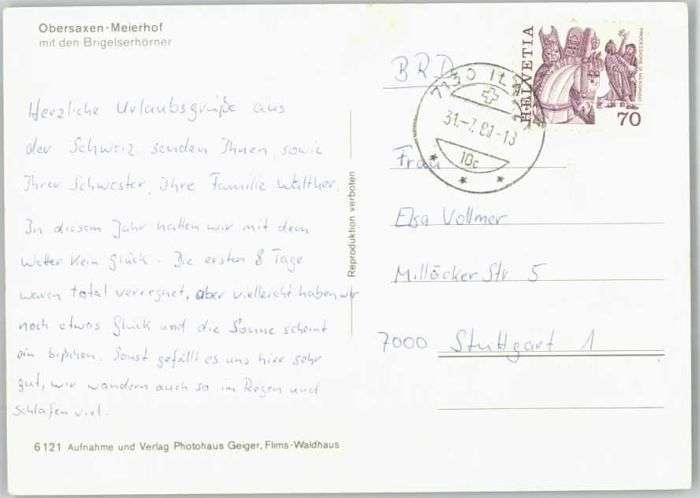 Obersaxen-Meierhof
mit den Brigelserhörner
Herzliche Urlaubsgrüße aus
der Schweiz, senden Ihnen, sowie
Ihrer Schwester, Ihre Familie Walther.
In diesem Jahr hatten wir mit dem
Wetter kein Glück. Die ersten 8 Tage
waren total verregnet, aber vielleicht haben wir
noch etwas Glück und die Sonne scheint
ein bißchen. Sonst gefällt es uns hier sehr
gut, wir wandern auch so im Regen und
schlafen viel.
6121 Aufnahme und Verlag Photohaus Geiger, Flims-Waldhaus
Reproduktion verboten
BRD
7130
31.-7.80-18
10c
HELVETIA
70
Frau
Elsa Vollmer
Millöcker Str 5
7000 Stuttgart 1